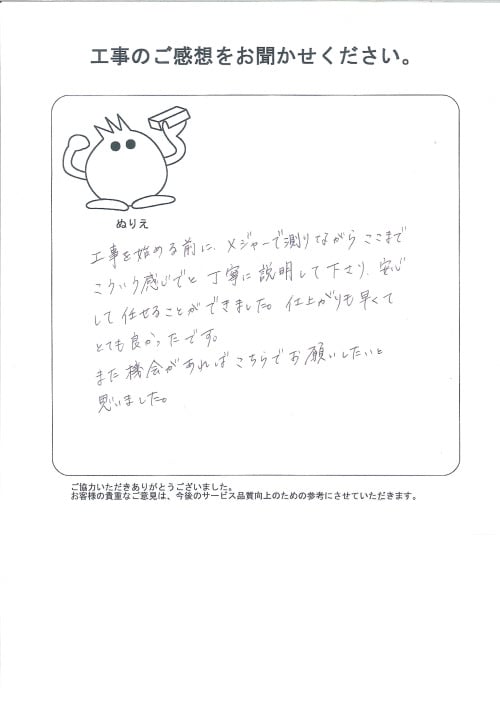 工事のご感想をお聞かせください。
ぬりえ
工事を始める前に、メジャーで測りながら ここまで
こういう感じでと 丁寧に説明して下さり、安心
して任せることができました。仕上がりも早くて
とても良かったです。
また機会があれば こちらでお願いしたいと
思いました。
ご協力いただきありがとうございました。
お客様の貴重なご意見は、今後のサービス品質向上のための参考にさせていただきます。